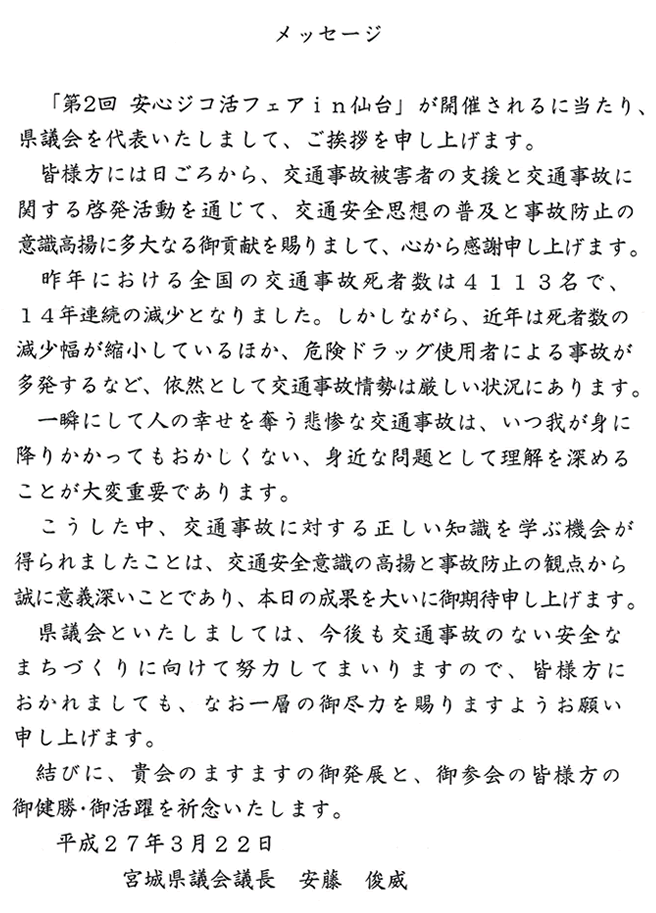 メッセージ
「第2回 安心ジコ活フェアｉｎ仙台」が開催されるに当たり、
県議会を代表いたしまして、ご挨拶を申し上げます。
皆様方には日ごろから、交通事故被害者の支援と交通事故に
関する啓発活動を通じて、交通安全思想の普及と事故防止の
意識高揚に多大なる御貢献を賜りまして、心から感謝申し上げます。
昨年における全国の交通事故死者数は４１１３名で、
１４年連続の減少となりました。しかしながら、近年は死者数の
減少幅が縮小しているほか、危険ドラッグ使用者による事故が
多発するなど、依然として交通事故情勢は厳しい状況にあります。
一瞬にして人の幸せを奪う悲惨な交通事故は、いつ我が身に
降りかかってもおかしくない、身近な問題として理解を深める
ことが大変重要であります。
こうした中、交通事故に対する正しい知識を学ぶ機会が
得られましたことは、交通安全意識の高揚と事故防止の観点から
誠に意義深いことであり、本日の成果を大いに御期待申し上げます。
県議会といたしましては、今後も交通事故のない安全な
まちづくりに向けて努力してまいりますので、皆様方に
おかれましても、なお一層の御尽力を賜りますようお願い
申し上げます。
結びに、貴会のますますの御発展と、御参会の皆様方の
御健勝･御活躍を祈念いたします。
平成２７年３月２２日
宮城県議会議長　安藤　俊威